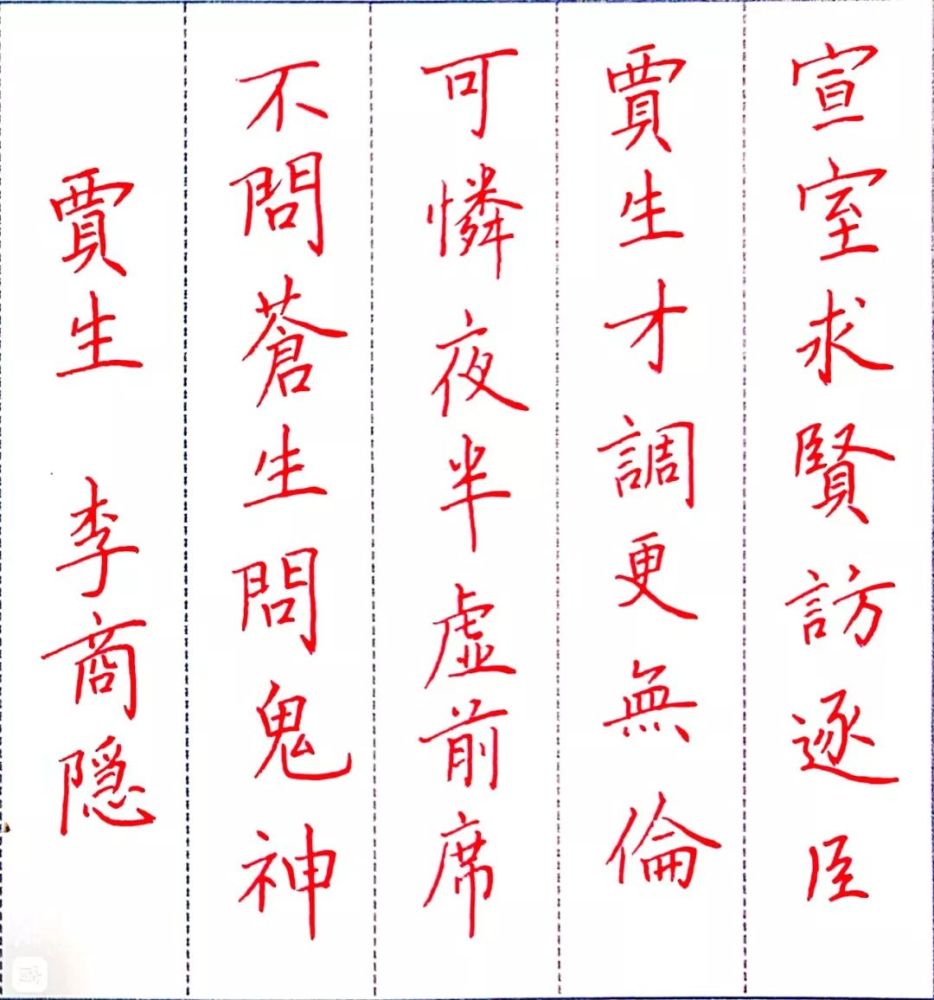 宣室求賢訪逐臣
賈生才調更無倫
可憐夜半虛前席
不問蒼生問鬼神
賈生 李商隱